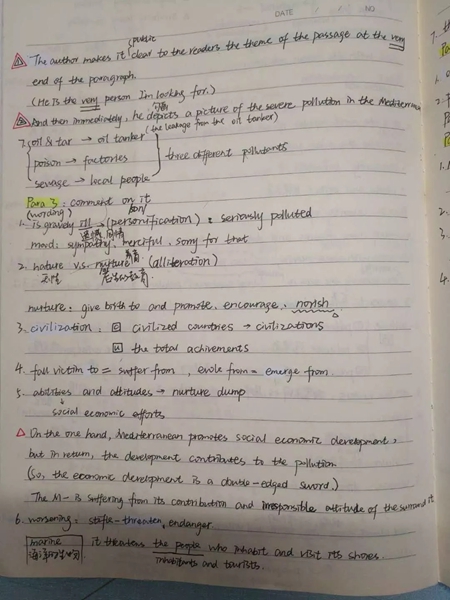 DATE / / NO
public
① The author makes it clear to the readers the theme of the passage at the very
end of the paragraph.
(He is the very person I'm looking for.)
And then immediately, he depicts a picture of the severe pollution in the Mediterran
(the leakage from the oil tanker)
7. oil & tar → oil tanker
poison → factories
three different pollutants
sewage → local people
Para 3: comment on it
(wording)
1. is gravely ill → (personification): seriously polluted
mood: sympathy, merciful, sorry for that
2. nature v.s. nurture (alliteration)
nurture: give birth to and promote, encourage, norish
3. civilization: [C] civilized countries → civilizations
[U] the total achivements
4. fall victim to = suffer from, evole from = emerge from
5. abilities and attitudes → nurture dump
social economic efforts
△ On the one hand, Mediterranean promotes social economic development,
but in return, the development contributes to the pollution
(So, the economic development is a double-edged sword.)
The M- is suffering from its contribution and irresponsible attitude of the surround it
6. worsening: threaten, endanger
marine
it threatens the people who inhabit and visit its shores.
inhabitants and tourists.